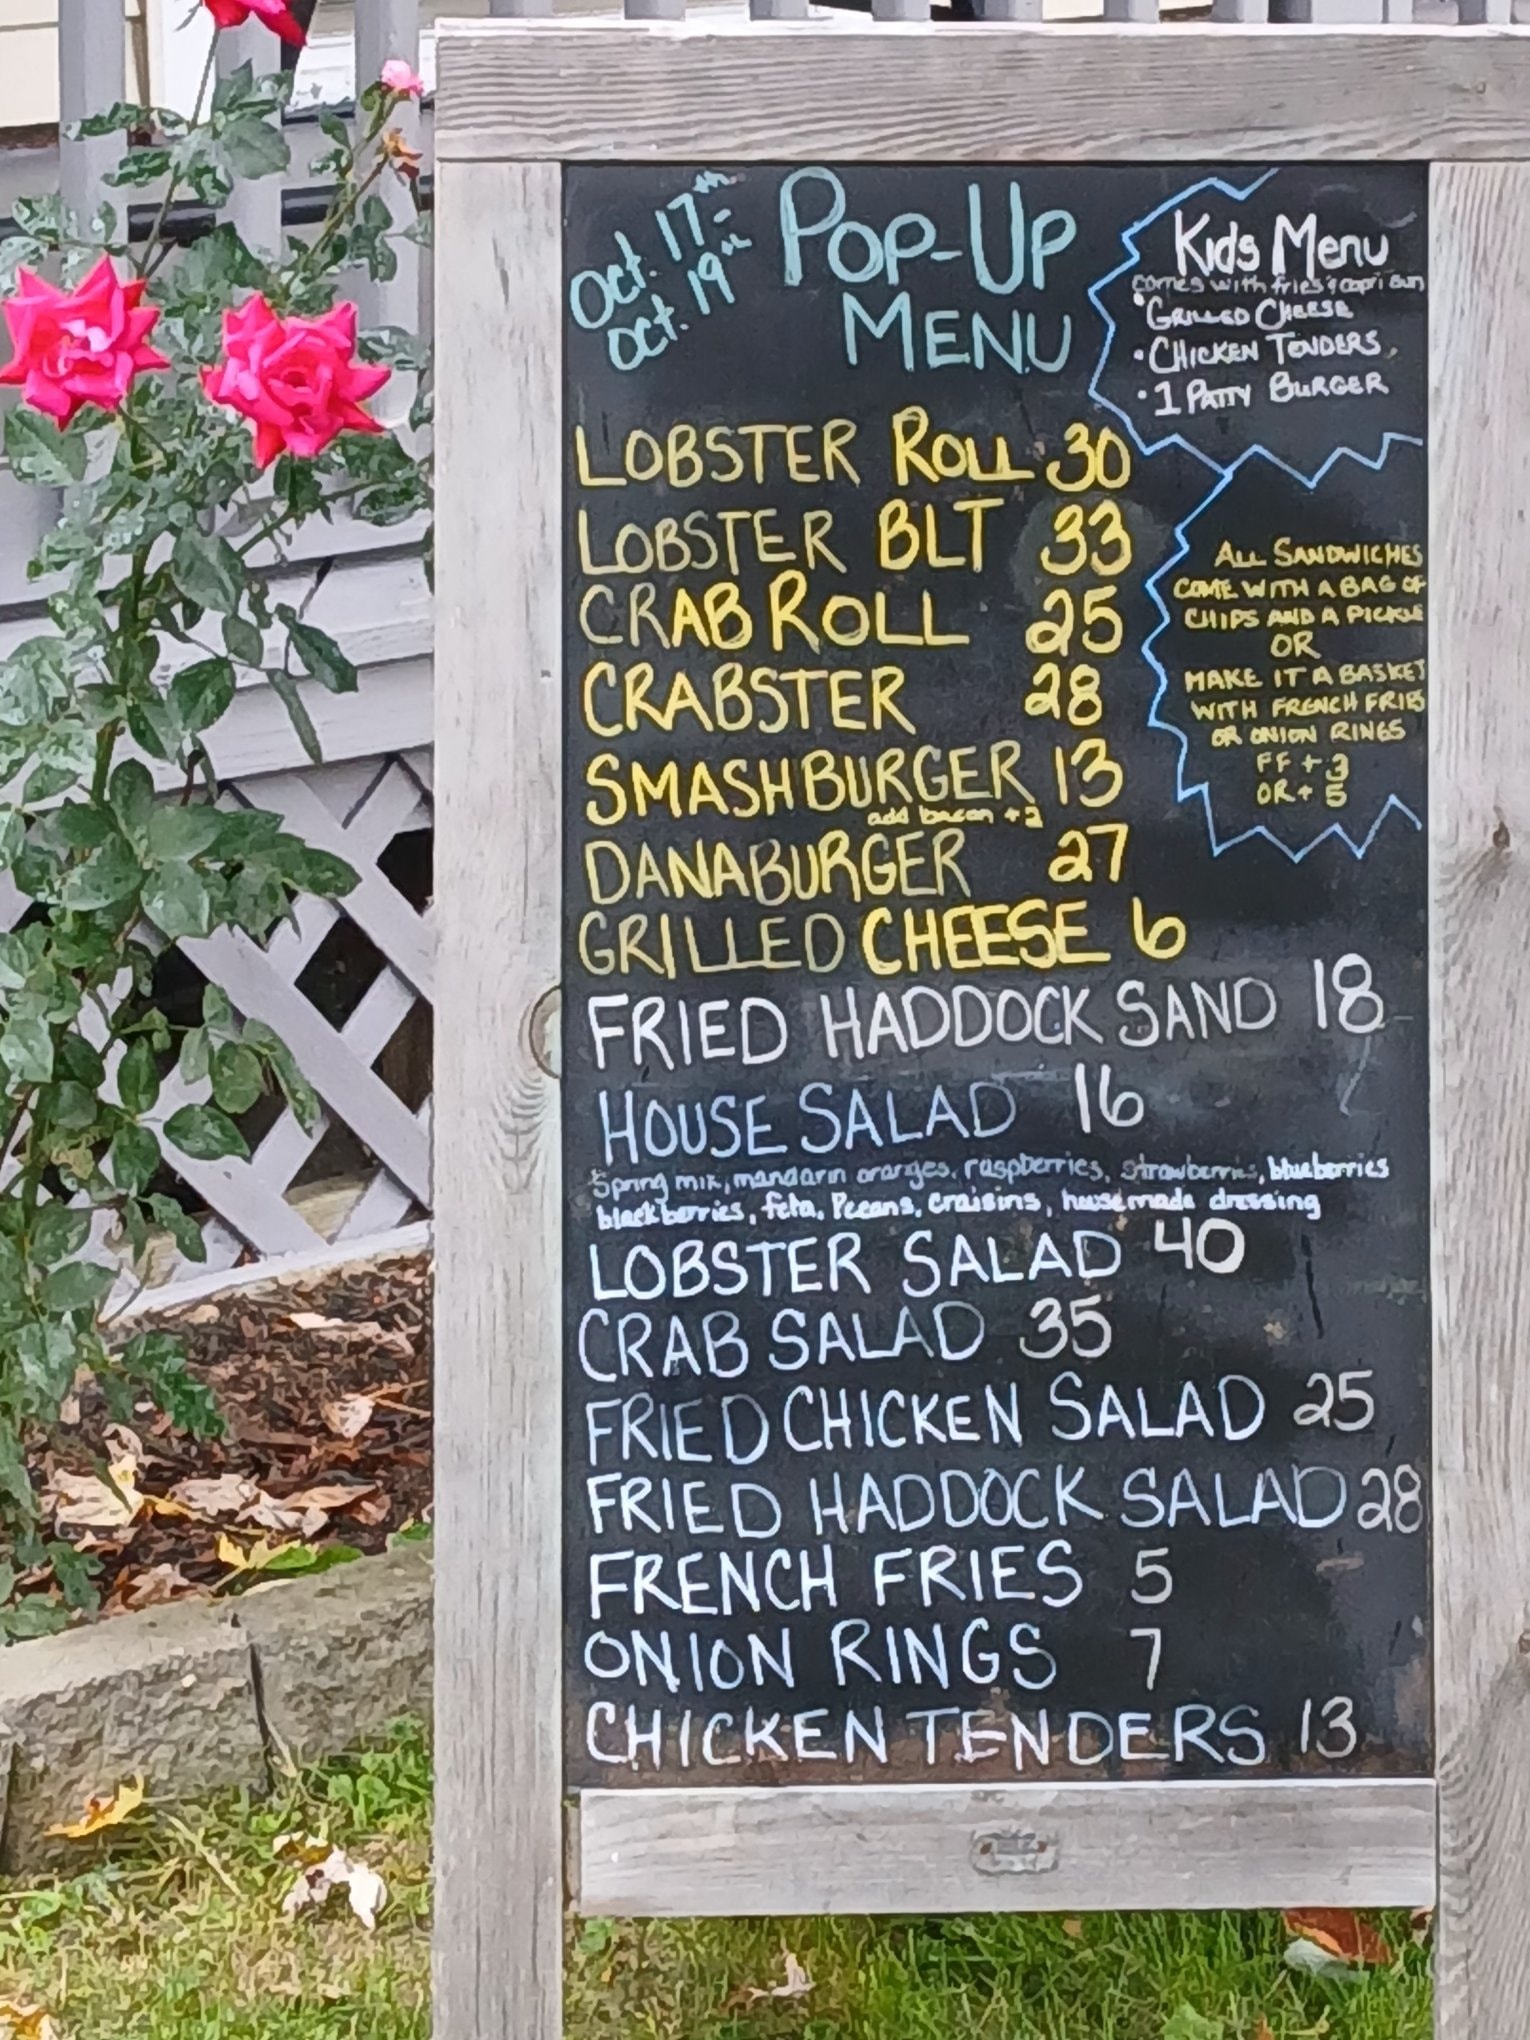 Oct. 17th -
Oct. 19th
POP-UP
MENU
Kids Menu
comes with fries & capri sun
• GRILLED CHEESE
• CHICKEN TENDERS
• 1 PATTY BURGER
LOBSTER ROLL 30
LOBSTER BLT 33
CRAB ROLL 25
CRABSTER 28
SMASHBURGER 13
add bacon +2
DANABURGER 27
GRILLED CHEESE 6
ALL SANDWICHES
COME WITH A BAG OF
CHIPS AND A PICKLE
OR
MAKE IT A BASKET
WITH FRENCH FRIES
OR ONION RINGS
FF + 3
OR + 5
FRIED HADDOCK SAND 18
HOUSE SALAD 16
Spring mix, mandarin oranges, raspberries, strawberries, blueberries
blackberries, feta, Pecans, craisins, housemade dressing
LOBSTER SALAD 40
CRAB SALAD 35
FRIED CHICKEN SALAD 25
FRIED HADDOCK SALAD 28
FRENCH FRIES 5
ONION RINGS 7
CHICKEN TENDERS 13